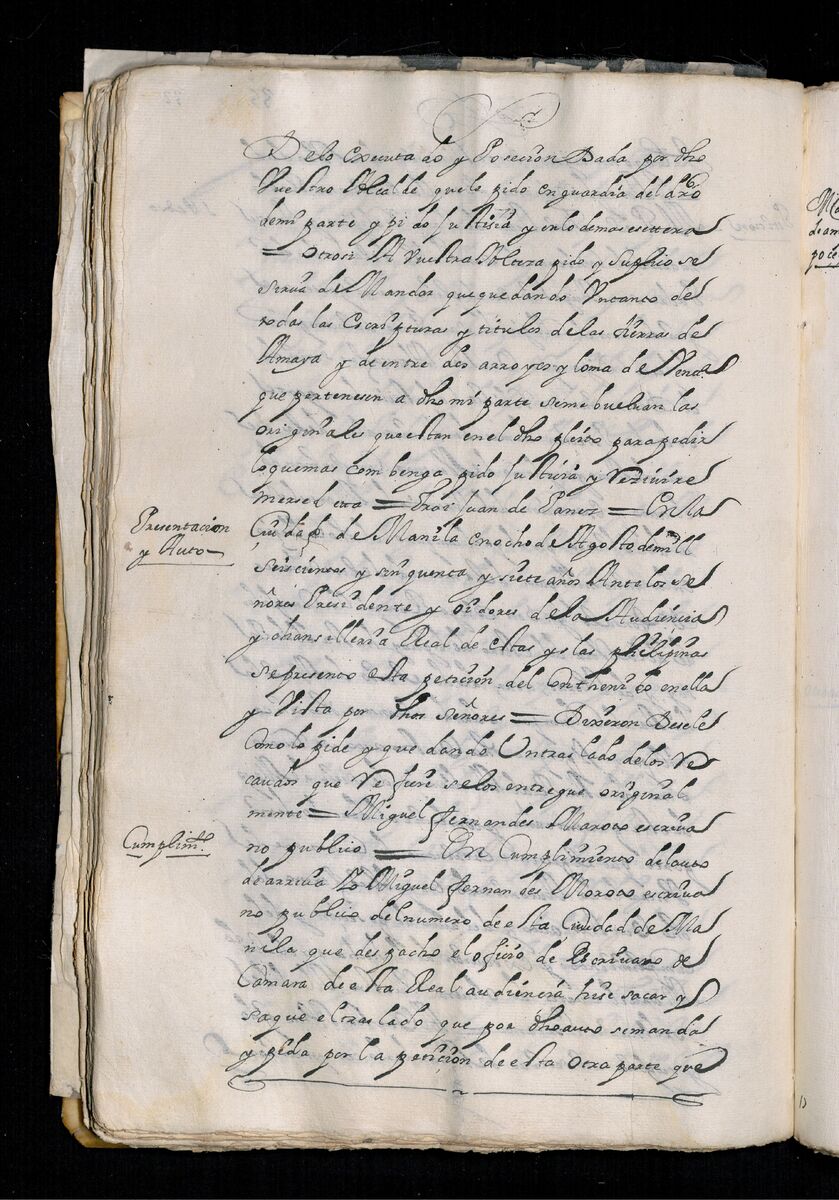 De lo executado y Posecion Dada por dho
Vuestro Alcalde que lo pido en guardia del dro
de mi parte y pido justisia y en lo demas esettera
= otrosi A Vuestra Alteza pido y suplico se
serva de Mandar que quedando Un tanto de
todas las Escripturas y titulos de las tierras de
Amaya y de entre dos arroyos y loma de
que pertenesen a dho mi parte se me buelvan las
originales que estan en el dho pleito para pedir
lo que mas combenga pido justicia y Resivire
mersed etta = Frai Juan de Panes = En la
Ciudad de Manila en ocho de Agosto de mill
seiscientos y sinquenta y siete años Ante los se
ñores Presidente y oidores de la Audiencia
y chansilleria Real de estas yslas philipinas
se presento esta peticion del conthenido en ella
y Vista por dhos señores = Dixeron Desele
como lo pide y quedando Un traslado de los Re
caudos que Refiere se los entregue original
mente = Miguel fernandes Maroto escriva
no publico = En Cumplimiento del auto
de arriva Yo Miguel fernandes Moroto escriva
no publico del numero de esta Ciudad de Ma
nila que despacho el ofisio de Escrivano de
Camara de esta Real audiencia hise sacar y
saque el traslado que por dho auto se manda
y pida por la peticion de esta otra parte que
Presentacion
y Auto
Cumplimto